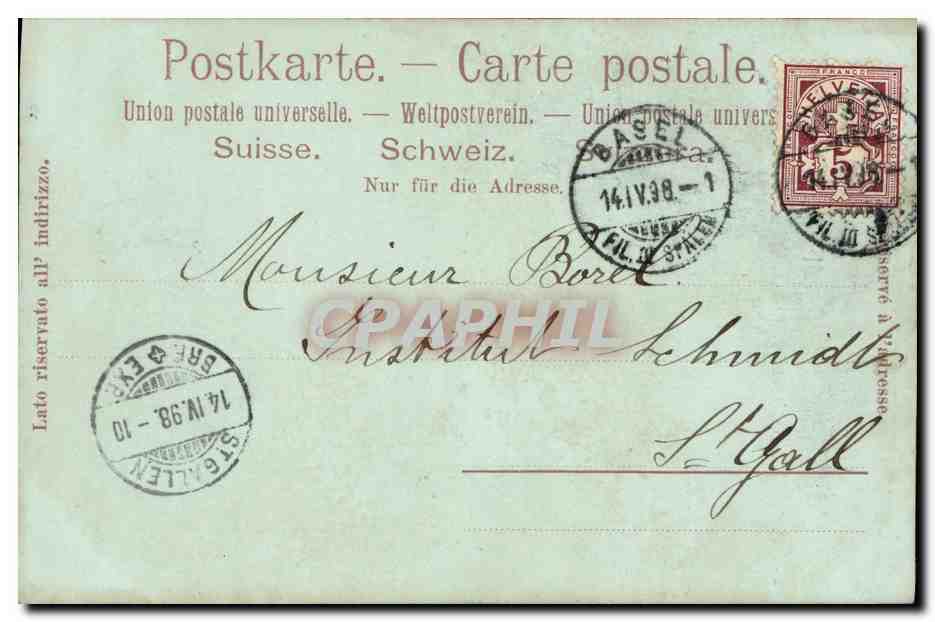 Postkarte. — Carte postale.
Union postale universelle. — Weltpostverein. — Union postale univers
Suisse. Schweiz. S ra.
Nur für die Adresse.
Lato riservato all' indirizzo.
servé à l'adresse
FRANCO
HELVETIA
5
BASEL
14.IV.98.–1
FIL. III ST ALBN
BASEL
14.IV.98.–1
FIL. III
Monsieur Borel.
Institut Schmidt
St Gall
ST GALLEN
14.IV.98.–10
BRF. EXP.
CPAPHIL